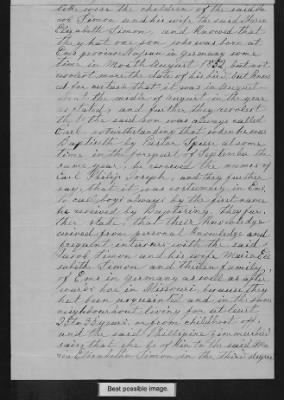 were the children of the said
Simon and his wife the said Maria
Elizabeth Simon, and knowed that
they had one son who was born at
Ems province Nassau in Germany some
time in Month August 1832, but not
recolect more the date of his bird, but know
for certain that it was in August
about the middle of August in the year
as stated, and further they recolect
that the said son was always called
Carl notwithstanding that when he was
Baptizeth by Pastor at some
time in the forepart of September the
same year, he received the names of
Carl Philip Joseph, and they further
say, that it was costumary in Ems,
to call boys always by the first name
he received by baptising. They fur-
ther state, that their knowledge
erived from personal knowledge and
frequent intercours with the said
Jacob Simon and his wife Maria Eli-
sabeth Simon and their family,
of Ems in Germany as well as after
wards here in Missouri, because they
hat been acquainted and in the same
neighbourhout living for at least
25 to 35 years, or from childhoot off,
and the said Phillipine Zimmerman
saies, that she is of kin to the said Ma
ria Elisabetha Simon in the third degree
Best possible image.